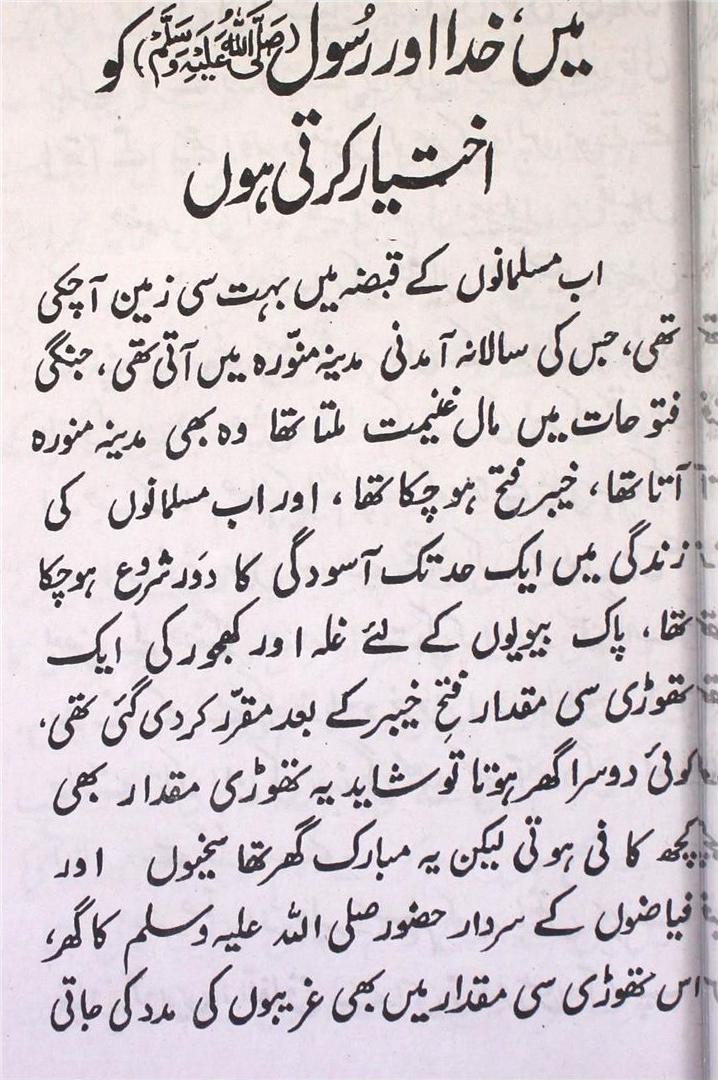 میں، خدا اور رسُول (صَلَّی اللّٰہُ عَلَیْہِ وَسَلَّمْ) کو
اختیار کرتی ہوں
اب مسلمانوں کے قبضہ میں بہت سی زمین آ چکی
تھی، جس کی سالانہ آمدنی مدینہ منوّرہ میں آتی تھی، جنگی
فتوحات میں مالِ غنیمت ملتا تھا وہ بھی مدینہ منورہ
آتا تھا، خیبر فتح ہو چکا تھا، اور اب مسلمانوں کی
زندگی میں ایک حد تک آسودگی کا دَور شروع ہو چکا
تھا، پاک بیویوں کے لئے غلہ اور کھجور کی ایک
تھوڑی سی مقدار فتحِ خیبر کے بعد مقرّر کر دی گئی تھی،
کوئی دوسرا گھر ہوتا تو شاید یہ تھوڑی مقدار بھی
کچھ کافی ہوتی لیکن یہ مبارک گھر تھا سخیوں اور
فیاضوں کے سردار حضور صلی اللہ علیہ وسلم کا گھر،
اس تھوڑی سی مقدار میں بھی غریبوں کی مدد کی جاتی